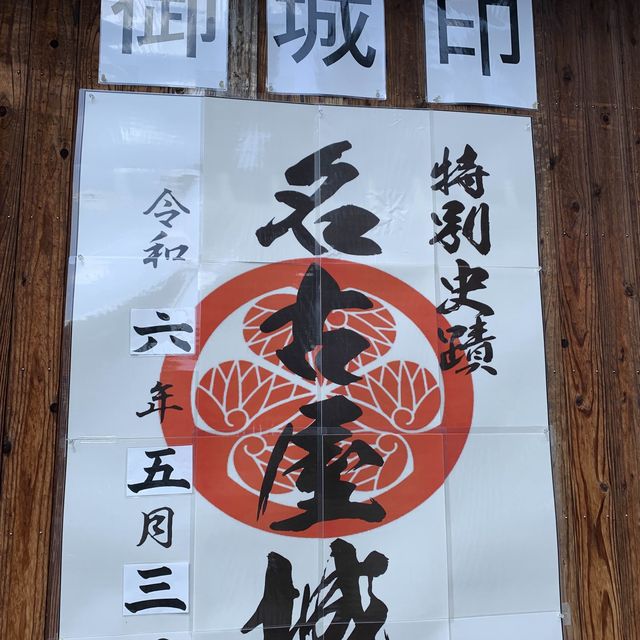 御城印
特別史蹟
名古屋城
令和六年五月三